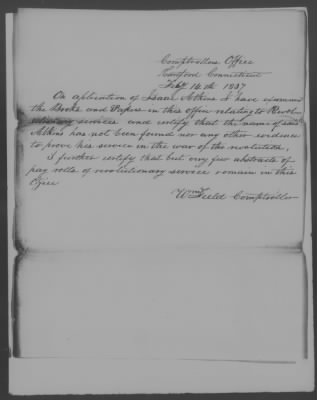 Comptrollers Office
Hartford Connecticut
Feby 14th 1837
On application of Isaac Atkins I have examined
the Books and Papers in this office relating to Revolu
tionary services and certify that the name of said
Atkins has not been found nor any other evidence
to prove his service in the war of the revolution,
I further certify that but very few abstracts of
pay rolls of revolutionary service remain in this
Office
Wm Field Comptroller